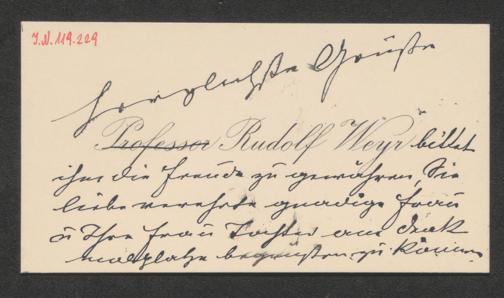 I.N. 119.229
herzlichste Grüße
Professor Rudolf Weyr bittet
ihm die Freude zu gewähren, Sie
liebe verehrte gnädige Frau
u Ihre Frau Tochter am Denk
malplatze begrüßen zu können